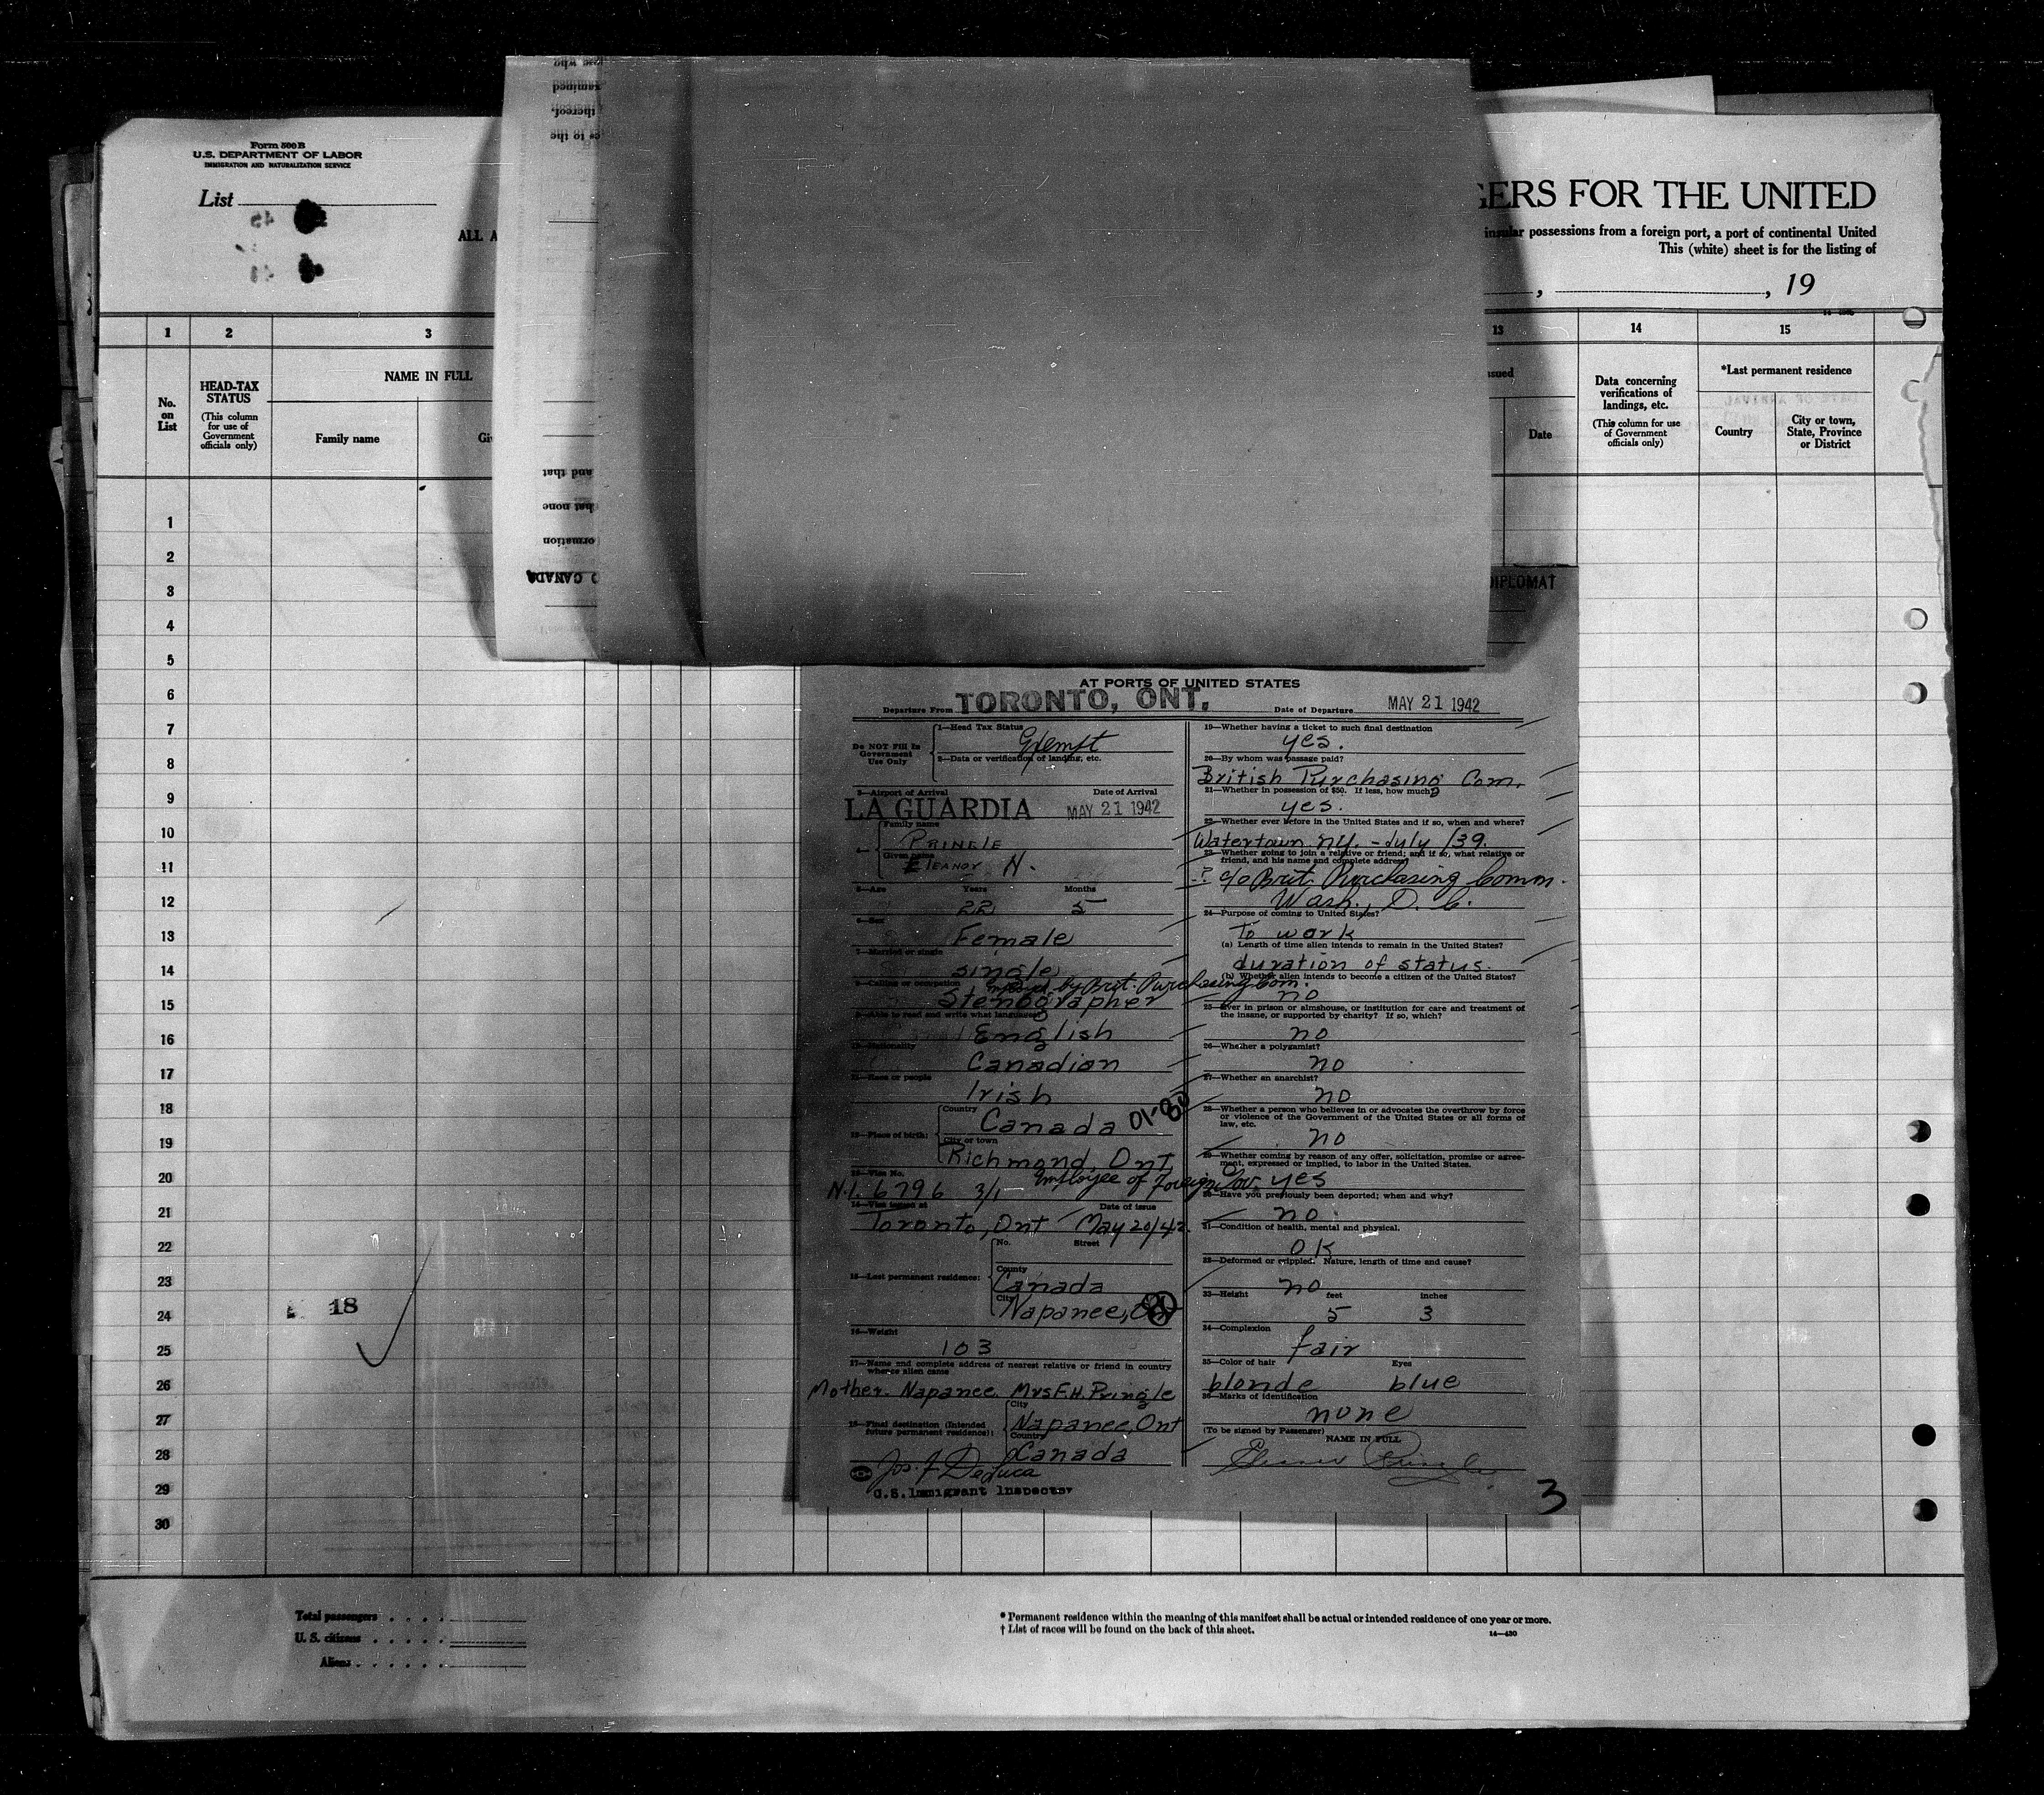 Form 500 B
U.S. DEPARTMENT OF LABOR
IMMIGRATION AND NATURALIZATION SERVICE
List
ALL A
GERS FOR THE UNITED
insular possessions from a foreign port, a port of continental United
This (white) sheet is for the listing of
, , 19
1 2 3 13 14 15
No. on List
HEAD-TAX STATUS
(This column for use of Government officials only)
NAME IN FULL
Family name
Giv
ssued
Date
Data concerning verifications of landings, etc.
(This column for use of Government officials only)
*Last permanent residence
Country
City or town, State, Province or District
ose who
examined
thereof.
ce to the
and that
that none
ormation
O CANADA
DIPLOMAT
1
2
3
4
5
6
7
8
9
10
11
12
13
14
15
16
17
18
19
20
21
22
23
24
25
26
27
28
29
30
18
AT PORTS OF UNITED STATES
Departure From TORONTO, ONT. Date of Departure MAY 21 1942
Do NOT Fill In Government Use Only
1—Head Tax Status
Exempt
2—Data or verification of landing, etc.
3—Airport of Arrival Date of Arrival
LA GUARDIA MAY 21 1942
4— Family name
PRINGLE
Given name
ELEANOR H.
5—Age Years Months
22 5
6—Sex
Female
7—Married or single
single
8—Calling or occupation
Employed by Brit. Purchasing Com.
Stenographer
9—Able to read and write what language
English
10—Nationality
Canadian
11—Race or people
Irish
12—Place of birth: Country
Canada 01-80
City or town
Richmond, Ont
13—Visa No.
N.I. 6796 3/1 - Employee of Foreign Gov.
14—Visa issued at Date of issue
Toronto, Ont May 20/42.
15—Last permanent residence: No. Street
County
Canada
City
Napanee, Ont
16—Weight
103
17—Name and complete address of nearest relative or friend in country whence alien came
Mother. Napanee. Mrs F.H. Pringle
18—Final destination (Intended future permanent residence): City
Napanee, Ont
Country
Canada
Jos. F. DeLuca
U.S. Immigrant Inspector
19—Whether having a ticket to such final destination
yes.
20—By whom was passage paid?
British Purchasing Com.
21—Whether in possession of $50. If less, how much?
yes.
22—Whether ever before in the United States and if so, when and where?
Watertown NY. - July /39.
23—Whether going to join a relative or friend; and if so, what relative or friend, and his name and complete address?
? c/o Brit. Purchasing Comm.
Wash., D.C.
24—Purpose of coming to United States?
To work
(a) Length of time alien intends to remain in the United States?
duration of status.
(b) Whether alien intends to become a citizen of the United States?
no
25—Ever in prison or almshouse, or institution for care and treatment of the insane, or supported by charity? If so, which?
no
26—Whether a polygamist?
no
27—Whether an anarchist?
no
28—Whether a person who believes in or advocates the overthrow by force or violence of the Government of the United States or all forms of law, etc.
no
29—Whether coming by reason of any offer, solicitation, promise or agreement, expressed or implied, to labor in the United States.
yes
30—Have you previously been deported; when and why?
no
31—Condition of health, mental and physical.
OK
32—Deformed or crippled. Nature, length of time and cause?
no
33—Height feet inches
5 3
34—Complexion
fair
35—Color of hair Eyes
blonde blue
36—Marks of identification
none
(To be signed by Passenger)
NAME IN FULL
Eleanor Pringle
3
Total passengers . . . .
U. S. citizens . . . . .
Aliens . . . . . .
* Permanent residence within the meaning of this manifest shall be actual or intended residence of one year or more.
† List of races will be found on the back of this sheet.
14—430